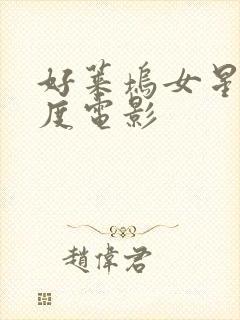 好莱塢女星
度電影
趙偉君